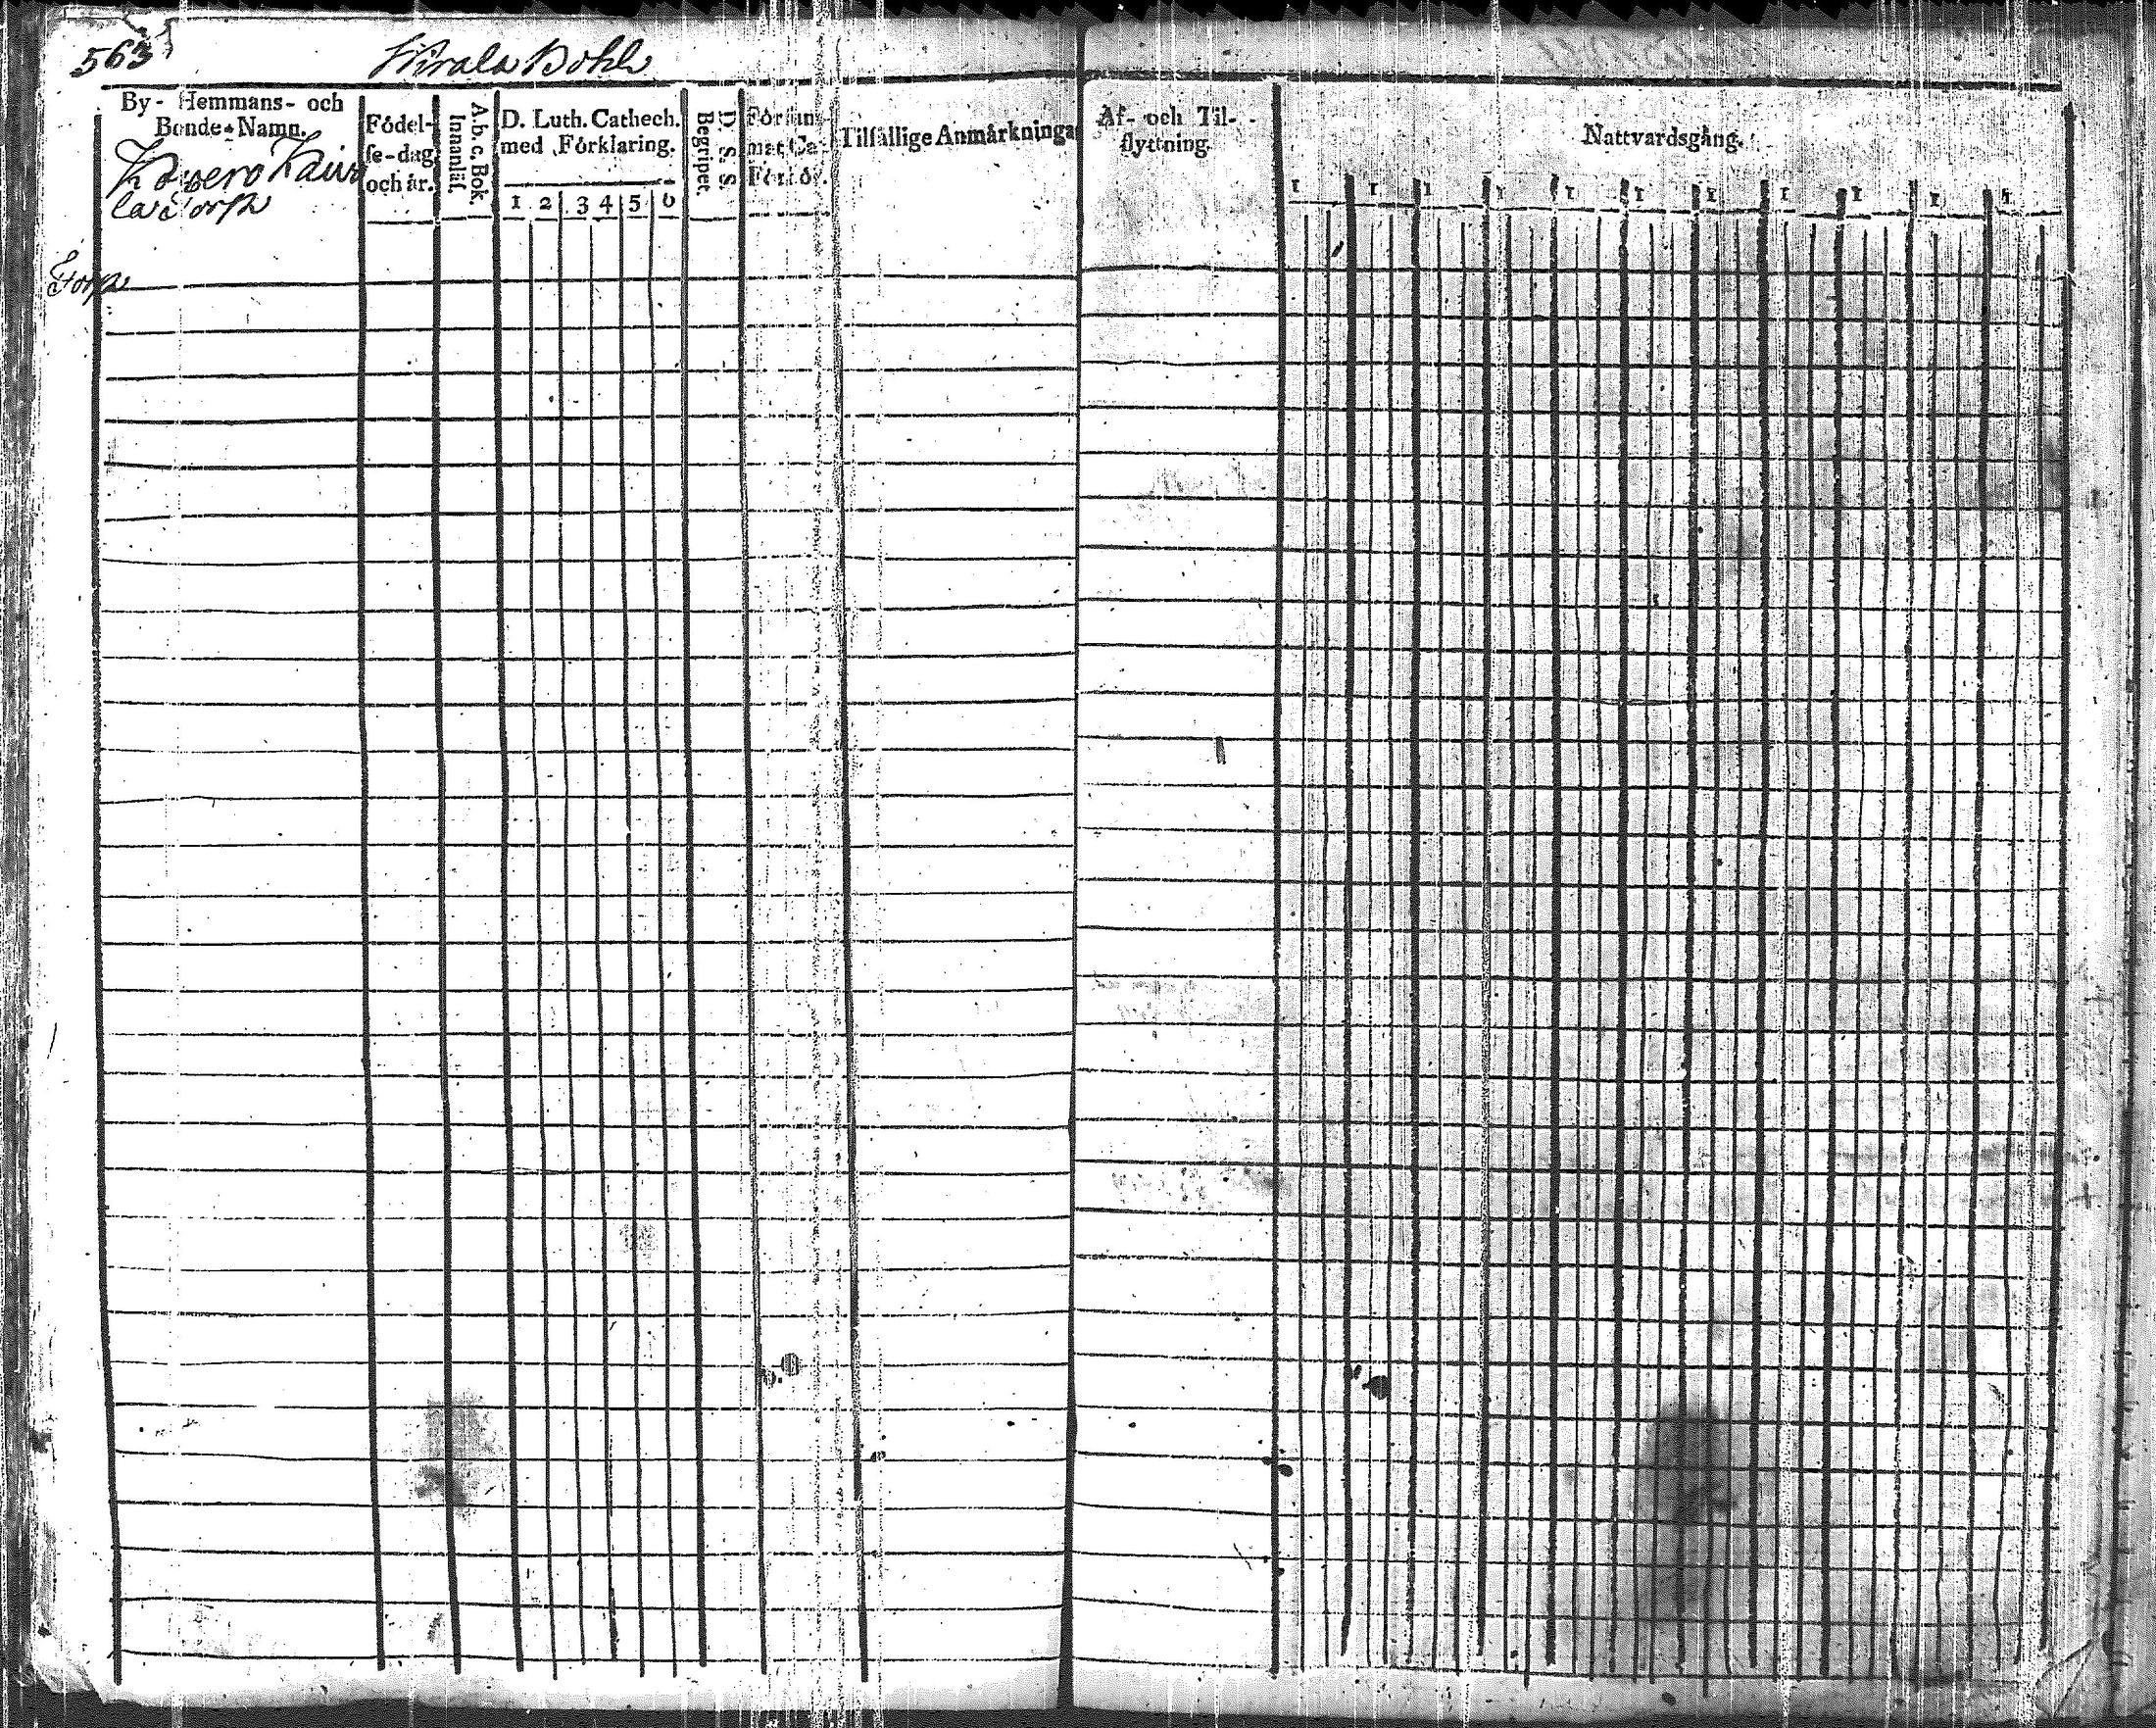 563
Hirala Bohl
By- Hemmans- och
Bonde-Namn.
Kovero Kaiv
la Torp
Torp
Födel-
se-dag
och år.
A. b. c. Bok.
Innanläs.
D. Luth. Cathech.
med Förklaring.
1 2 3 4 5 6
D. S. S.
Begripet.
Tilfällige Anmärkninga
Af- och Til-
flyttning.
Nattvardsgång.
1 1 1 1 1 1 1 1 1 1 1